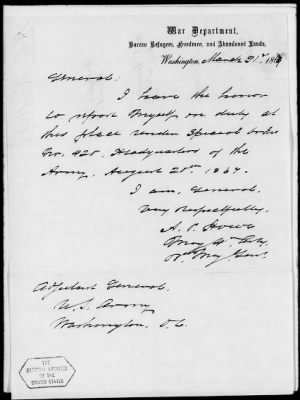 War Department,
Bureau Refugees, Freedmen, and Abandoned Lands,
Washington, March 31st, 186
General:
I have the honor
to report myself on duty at
this place under Special Order
No. 425. Headquarters of the
Army, August 28th 1867.
I am, General,
Very Respectfully,
A. P. Howe
Maj 4th Arty
Adjutant General,
U.S. Army
Washington, D.C.
THE
NATIONAL ARCHIVES
OF THE
UNITED STATES